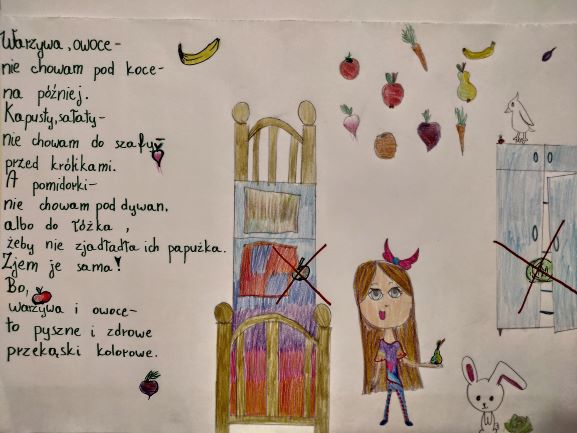 Warzywa, owoce-
nie chowam pod koce-
na później.
Kapusty, sałaty-
nie chowam do szafy-
przed królikami.
A pomidorki-
nie chowam pod dywan,
albo do łóżka,
żeby nie zjadładła ich papużka.
Zjem je sama!
Bo,
warzywa i owoce-
to pyszne i zdrowe
przekąski kolorowe.